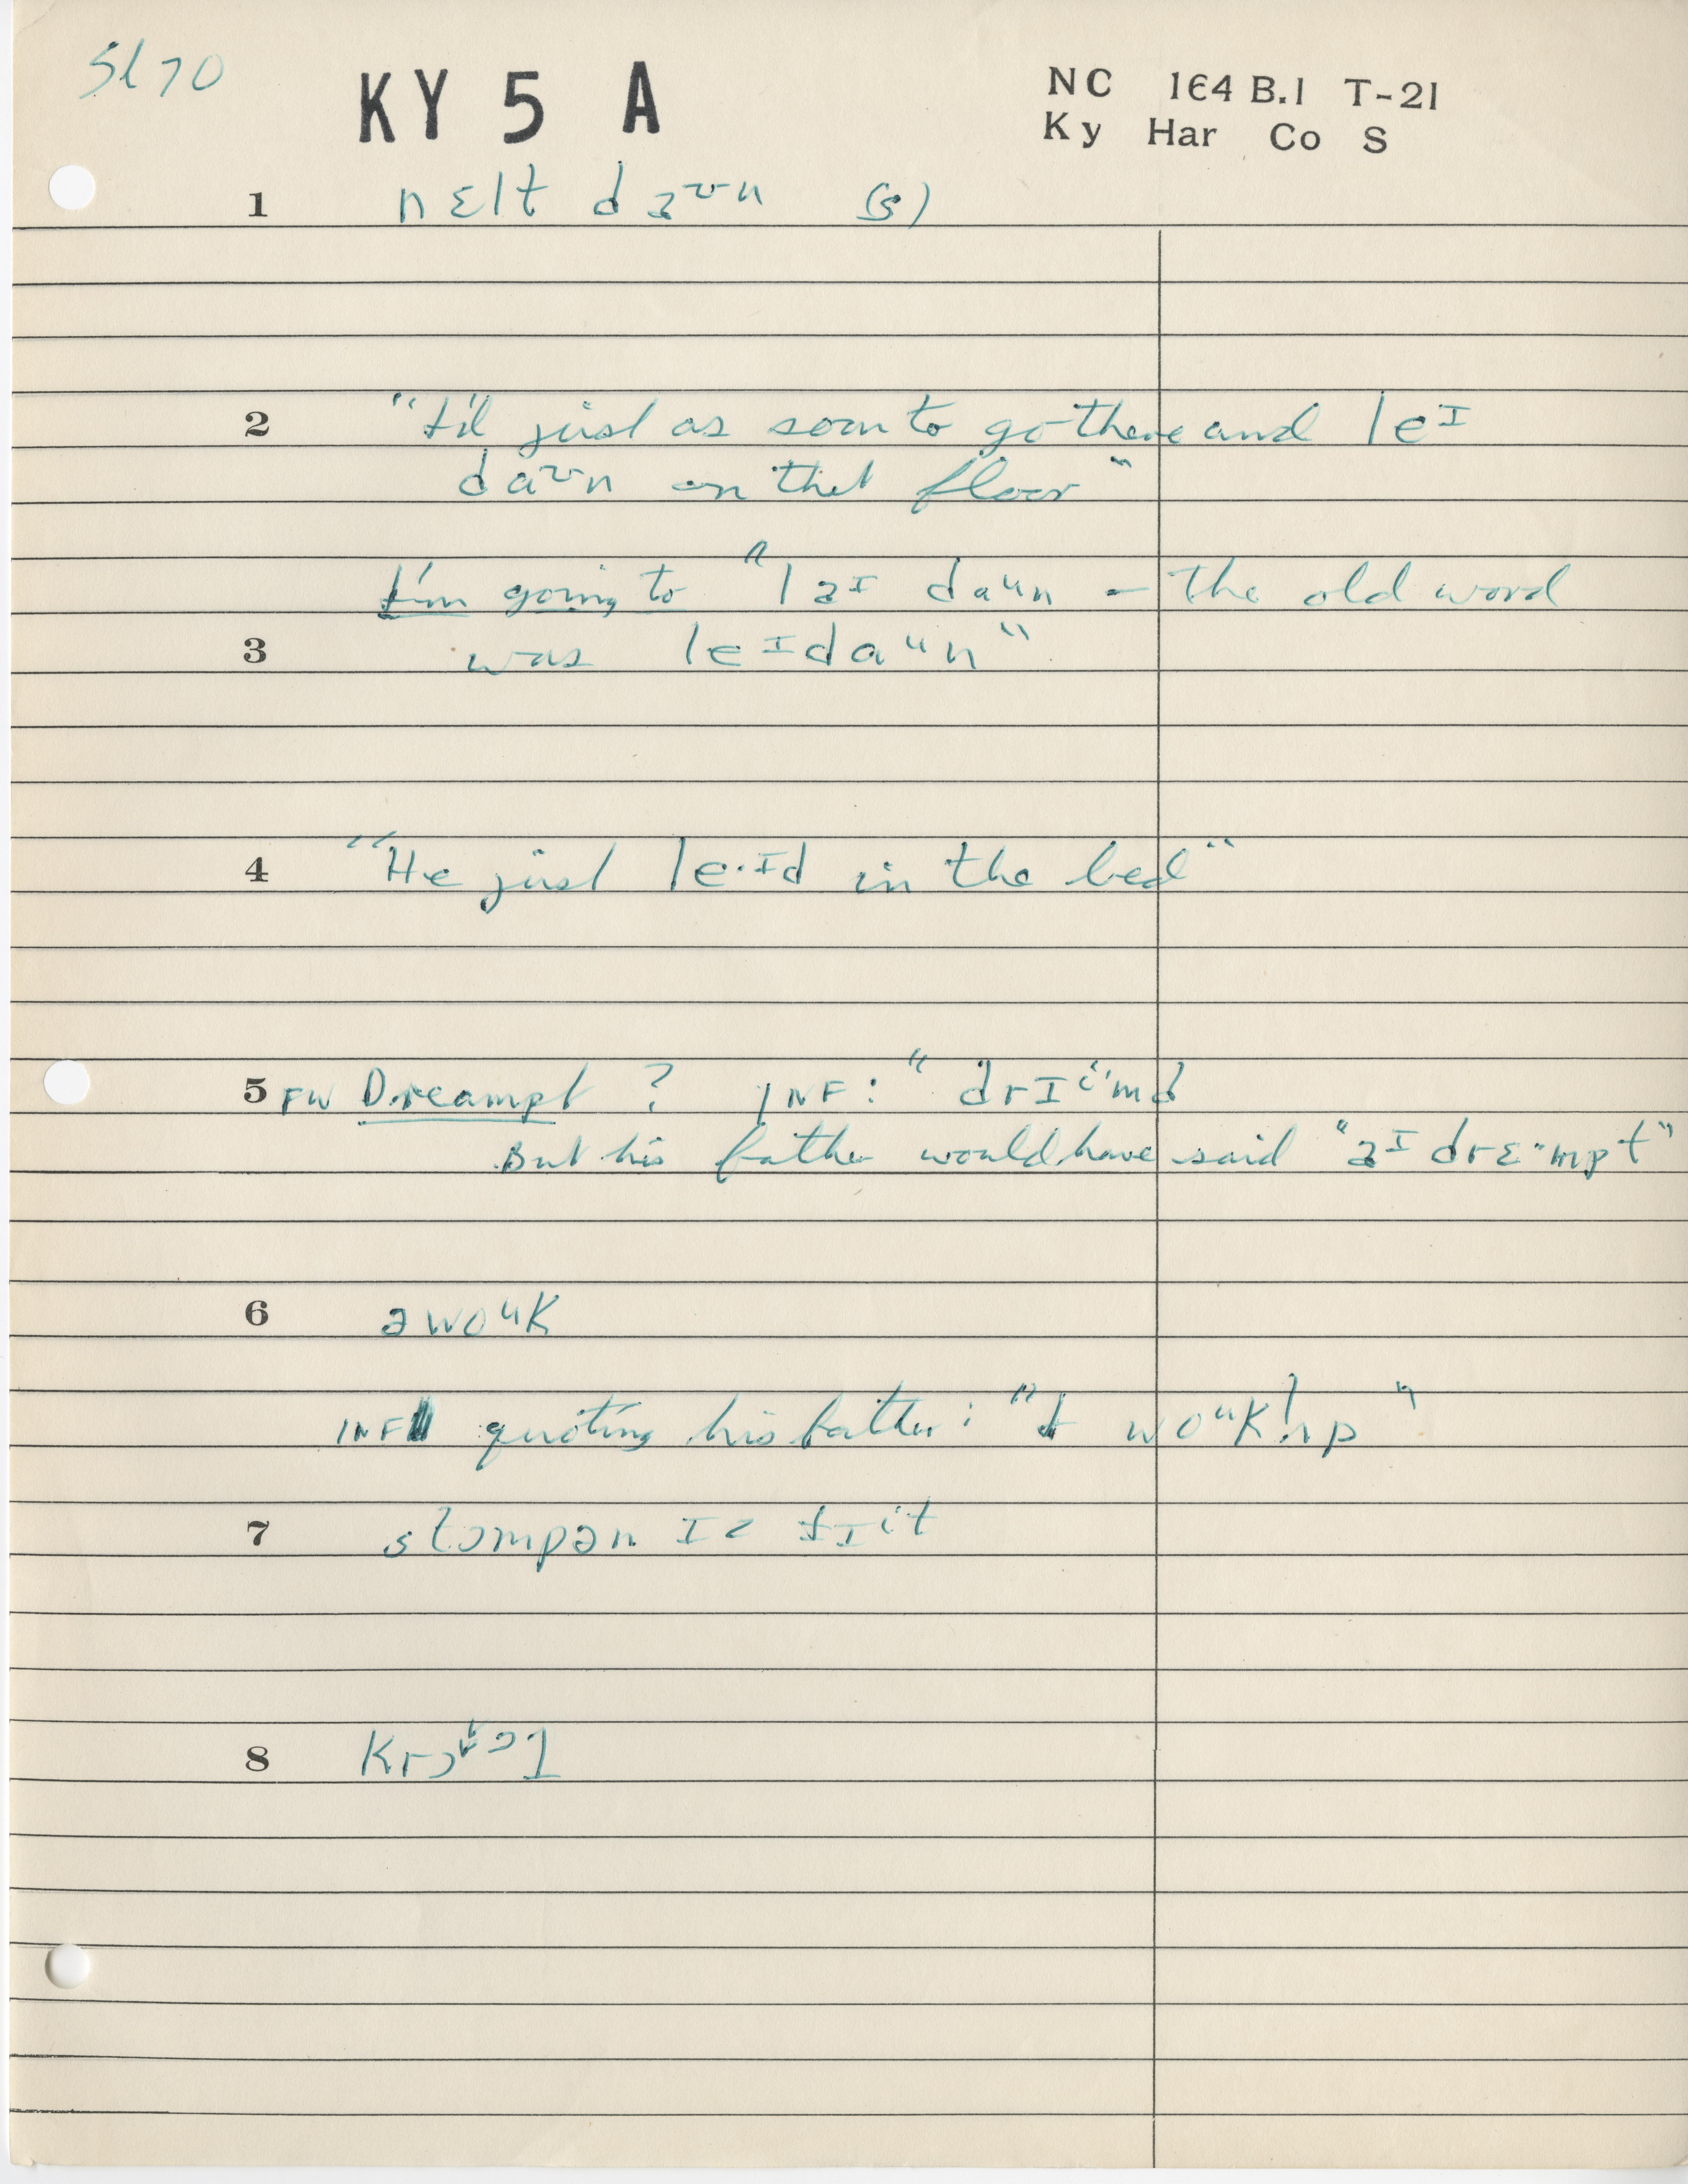 Sl70
KY 5 A
NC 1E4 B.1 T-21
Ky Har Co S
1 nɛlt daᶷn (s)
2 "I'd just as soon to go there and leᴵ
daᶷn on that floor"
I'm going to "laᴵ daᵘn – the old word
3 was leᴵdaᵘn"
4 "He just le·ᴵd in the bed"
5 FW Dreampt ? INF: "drIⁱ·md
But his father would have said "aᴵ drɛ·mpt"
6 əwoᵘk
INF quoting his father: "I woᵘk!ʌp"
7 stɔmpən Iz fIⁱt
8